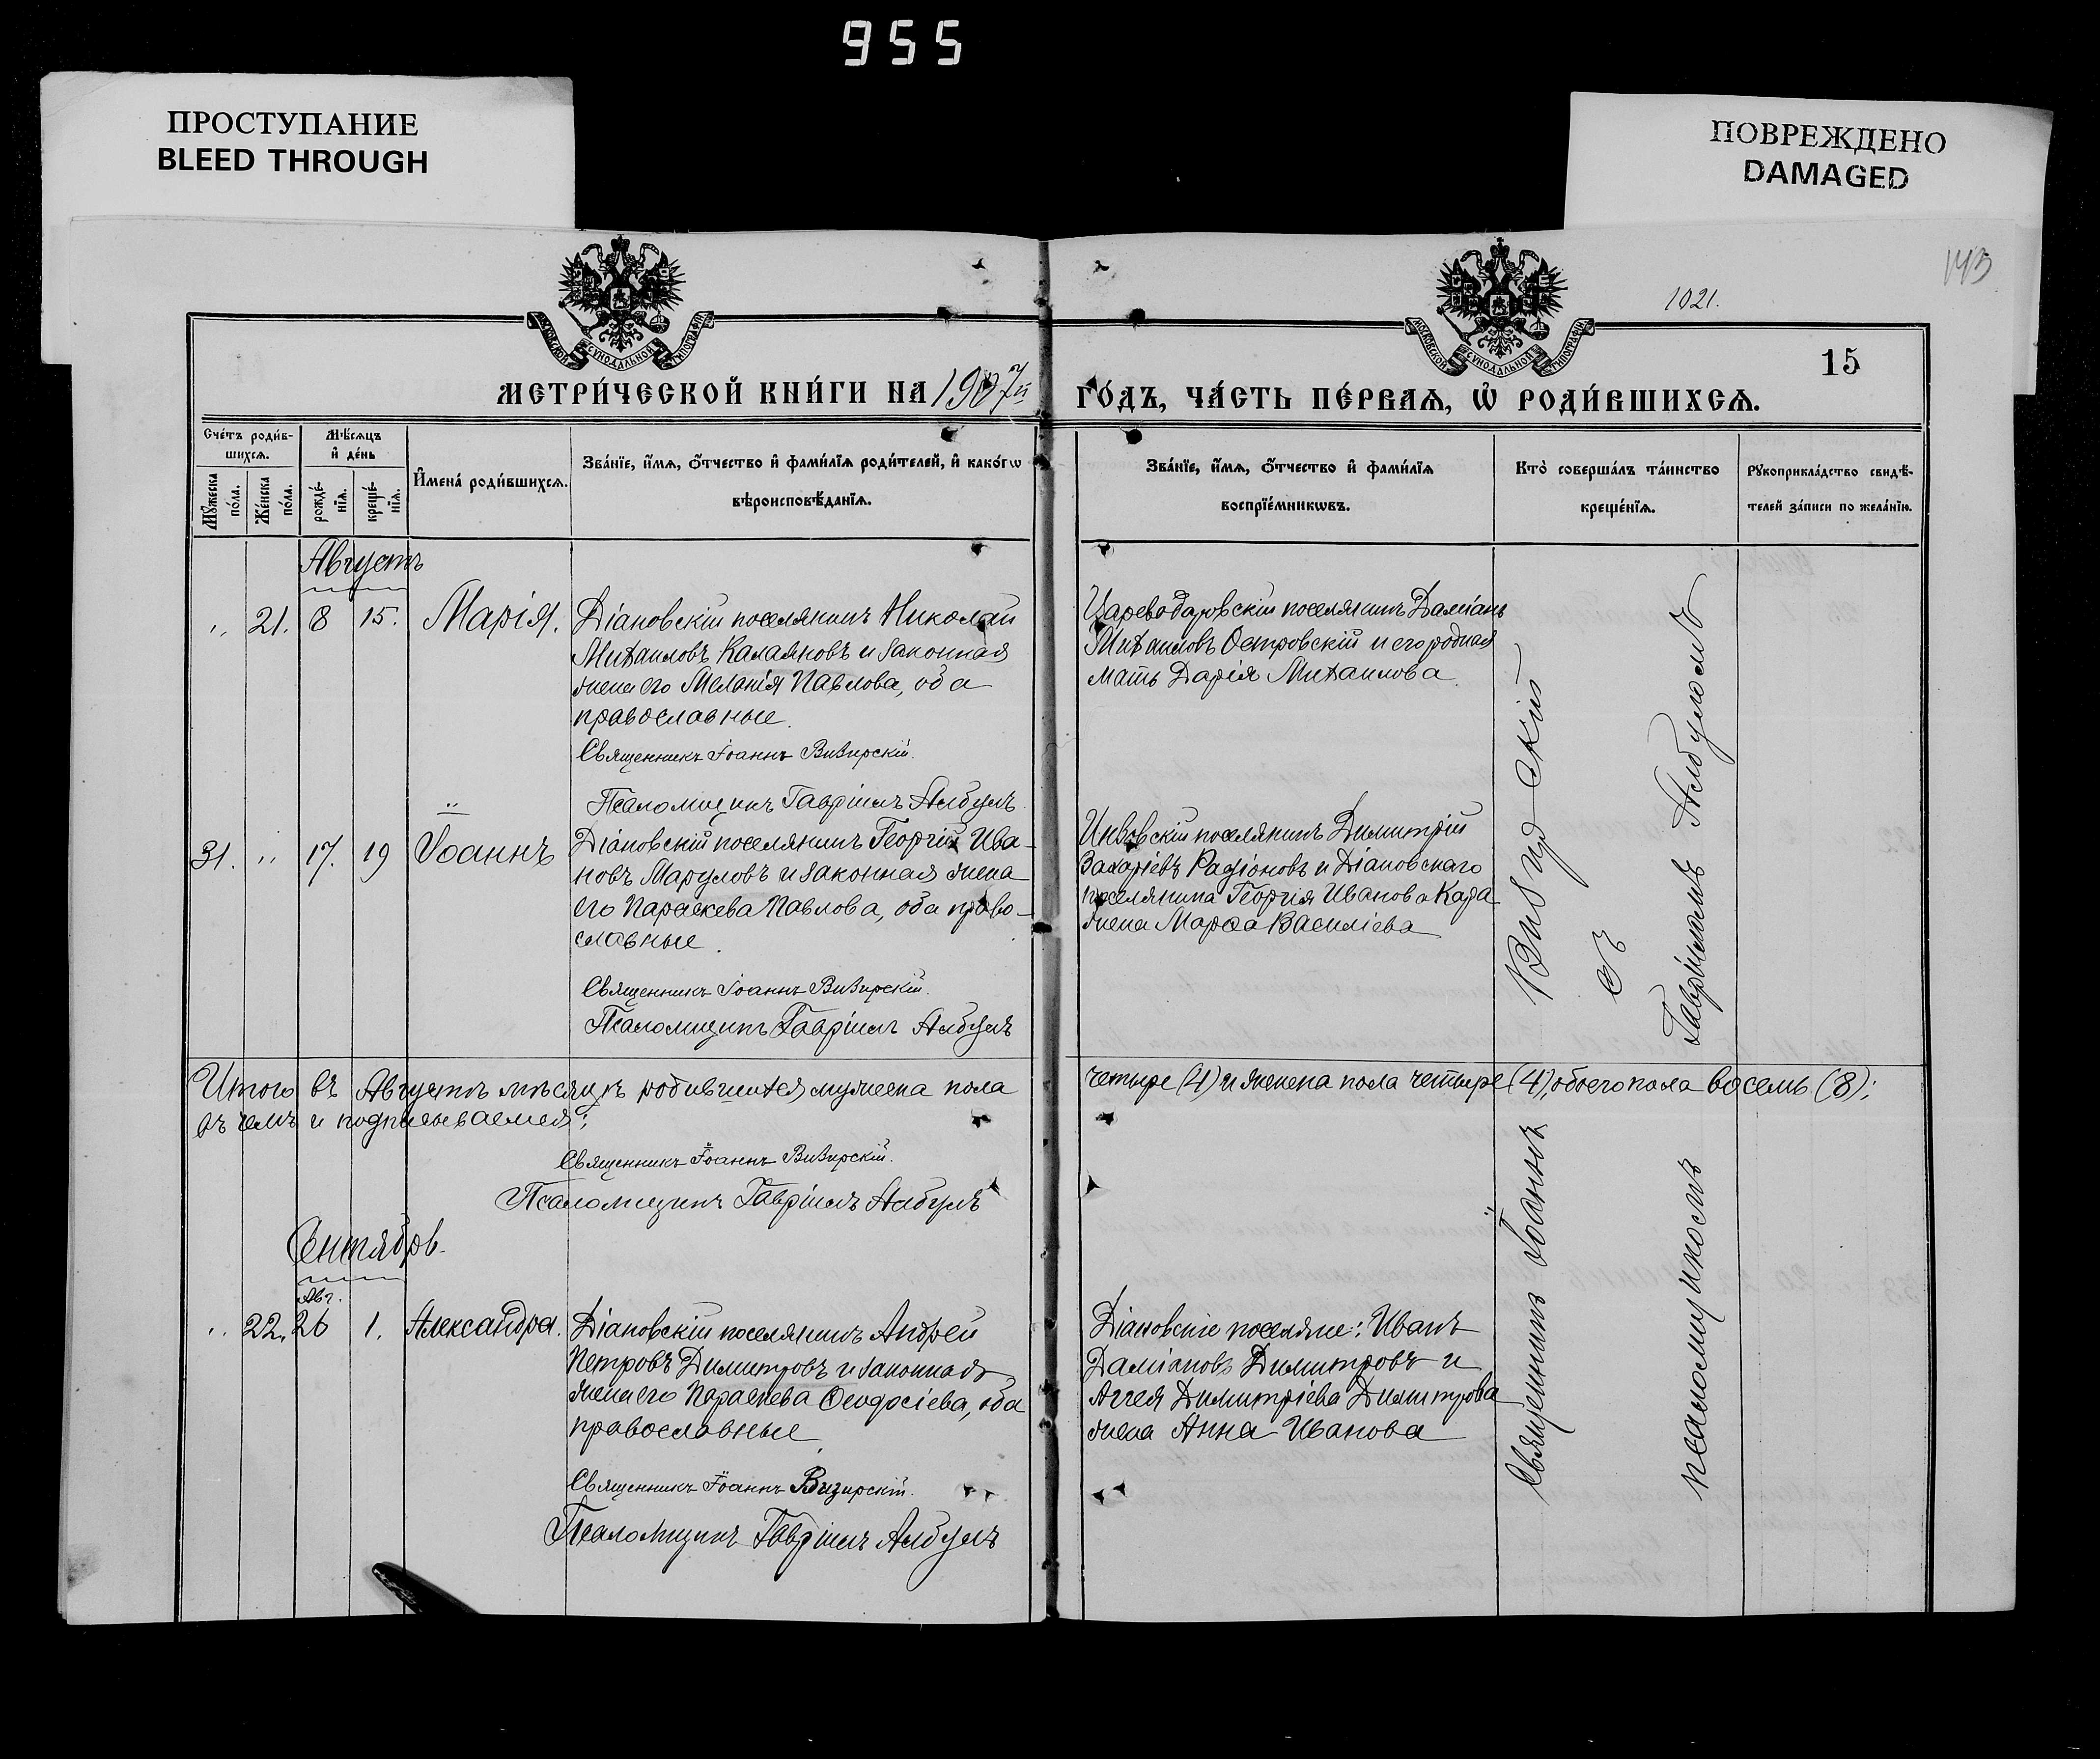 955
ПРОСТУПАНИЕ
BLEED THROUGH
ПОВРЕЖДЕНО
DAMAGED
143
1021.
МОСКОВСКОЙ СѴНОДАЛЬНОЙ ТИПОГРАФІИ
МОСКОВСКОЙ СѴНОДАЛЬНОЙ ТИПОГРАФІИ
15
МЕТРИ́ЧЕСКОЙ КНИ́ГИ НА 1907й
ГО́ДЪ, ЧА́СТЬ ПЕ́РВАѦ, Ѡ҆ РОДИ́ВШИХСѦ.
Сче́тъ роди́в-
шихсѧ.
Мꙋ́жеска по́ла.
Же́нска по́ла.
Мѣ́сѧцъ
и҆ де́нь
рожде́-
нїѧ.
креще́-
нїѧ.
И҆мена̀ роди́вшихсѧ.
Зва́нїе, и҆́мѧ, ѻ҆́тчество и҆ фами́лїѧ роди́телей, и҆ како́гѡ
вѣроисповѣ́данїѧ.
Зва́нїе, и҆́мѧ, ѻ҆́тчество и҆ фами́лїѧ
воспрїе́мникѡвъ.
Кто̀ соверша́лъ та́инство
креще́нїѧ.
Рꙋкоприкла́дство свидѣ́-
телей за́писи по жела́нїю.
Августъ
21. 8 15. Марія. Діановскій поселянинъ Николай
Михаиловъ Калаяновъ и законная
жена его Меланія Павлова, оба
православные.
Священникъ Іоаннъ Визирскій.
Псаломщикъ Гавріилъ Албулъ
Цареводаровскій поселянинъ Даміанъ
Михаиловъ Островскій и его родная
мать Дарія Михаилова.
31. 17. 19 Іоаннъ Діановскій поселянинъ Георгій Ива-
новъ Маруловъ и законная жена
его Параскева Павлова, оба право-
славные.
Священникъ Іоаннъ Визирскій.
Псаломщикъ Гавріилъ Албулъ
поселянинъ Димитрій
Захаріевъ Радіоновъ и Діановскаго
поселянина Георгія Иванова Кара
жена Марѳа Василіева
Итого въ Августѣ мѣсяцѣ родившихся мужеска пола
четыре (4) и женска пола четыре (4), обоего пола восемь (8);
въ чемъ и подписываемся;
Священникъ Іоаннъ Визирскій.
Псаломщикъ Гавріилъ Албулъ
Сентябрь.
Авг.
22. 26 1. Александра. Діановскій поселянинъ Андрей
Петровъ Димитровъ и законная
жена его Параскева Ѳеодосіева, оба
православные.
Священникъ Іоаннъ Визирскій.
Псаломщикъ Гавріилъ Албулъ
Діановскіе поселяне: Иванъ
Даміановъ Димитровъ и
Аггея Димитріева Димитрова
жена Анна Иванова
Священникъ Іоаннъ Визирскій
съ
псаломщикомъ Гавріиломъ Албуломъ